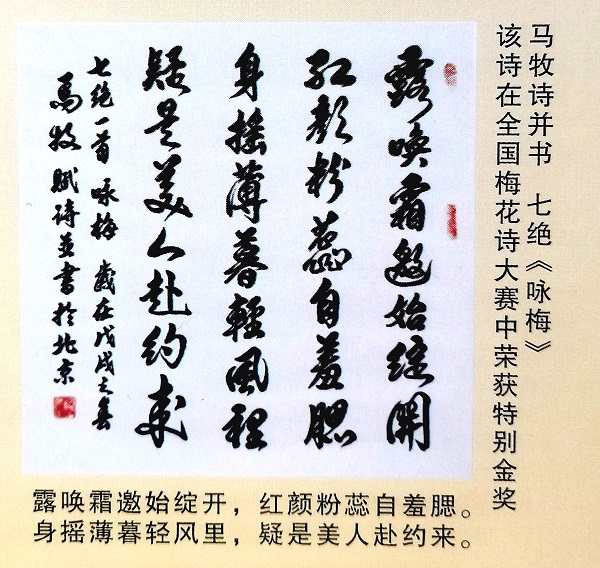 马牧诗并书 七绝《咏梅》
该诗在全国梅花诗大赛中荣获特别金奖
露喚霜邀始綻開
紅顏粉蕊自羞腮
身搖薄暮輕風裡
疑是美人赴約來
七絕一首 咏梅 歲在戊戌之春
馬牧賦詩並書於北京
露唤霜邀始绽开，红颜粉蕊自羞腮。
身摇薄暮轻风里，疑是美人赴约来。